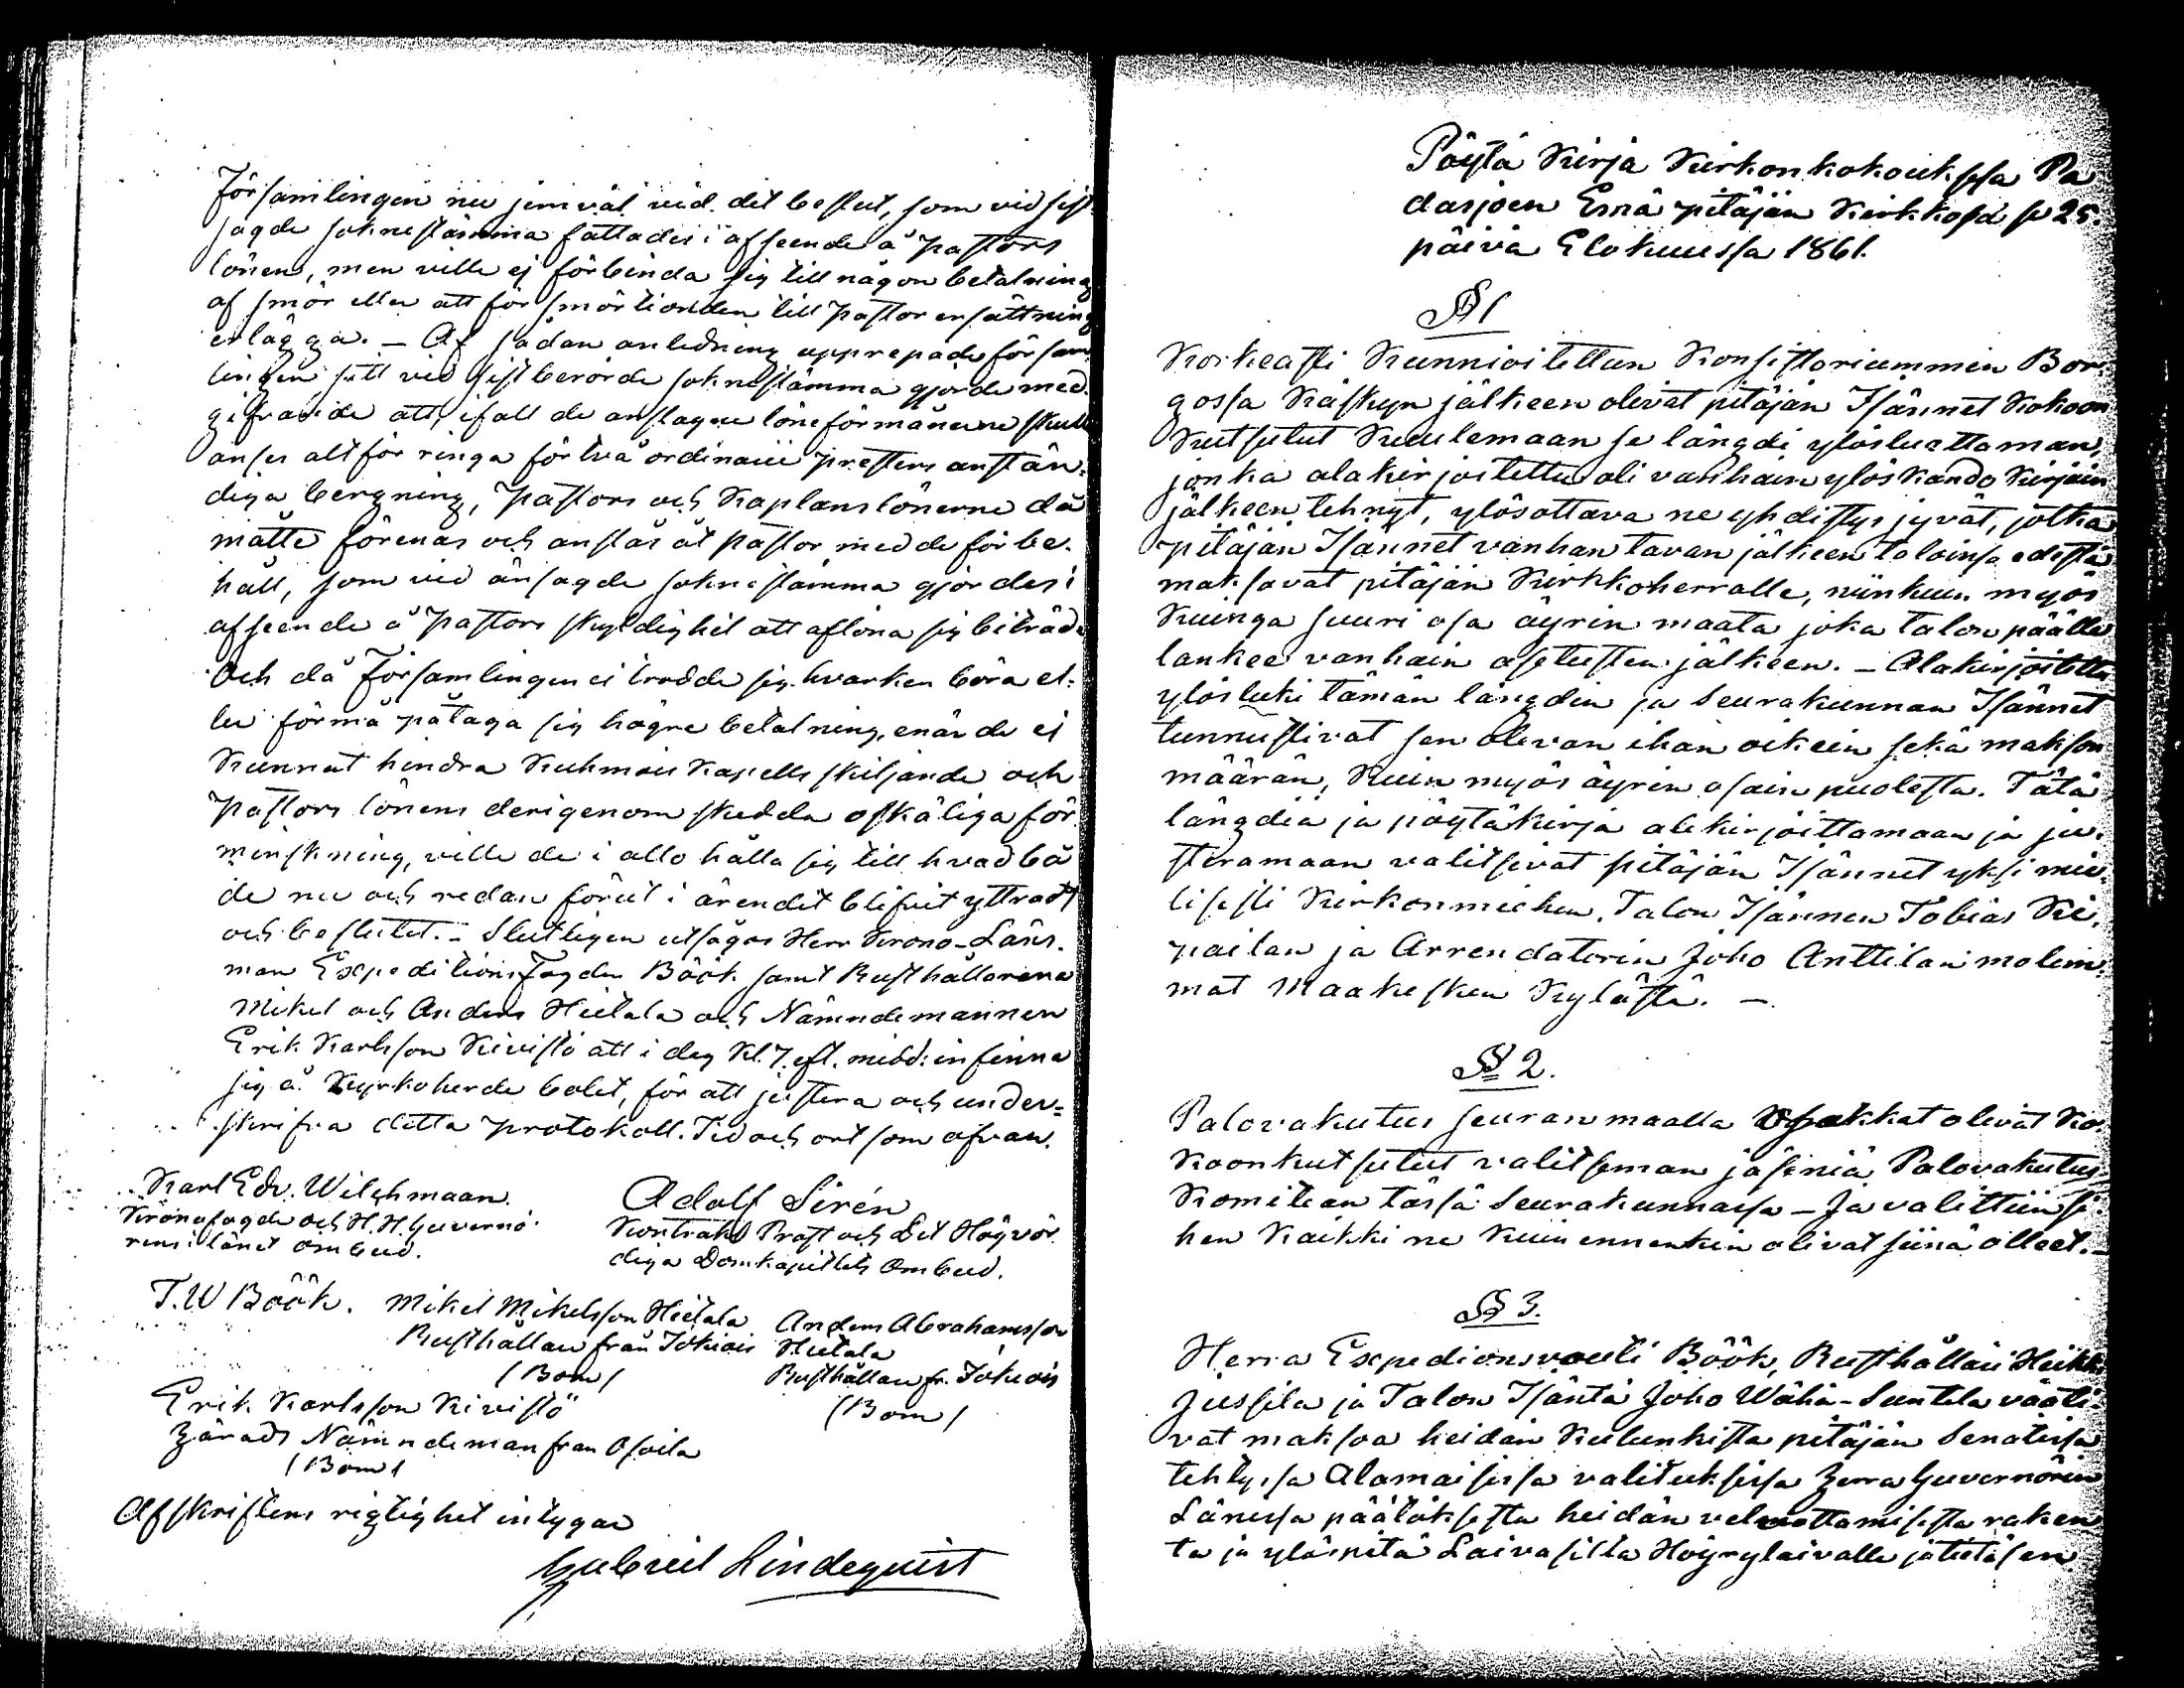 Församlingen nu jemväl vid det beslut, som vid sist
sagde sokne stämma fattades i afseende å Pastors
lönen, men ville ej förbinda sig till någon betalning
af smör eller att för smörtionden till Pastor ersättning
erlägga. – Af sådan anledning upprepade försam-
lingen sitt vid sist berörde soknestämma gjorde med-
gifvande att, ifall de anslagne löneförmånerne skulle
anses altför ringa för två ordinarie Presters anstän-
diga bergning, Pastors och Kaplans lönerne då
måtte förenas och anslås åt Pastor med de förbe-
håll, som vid ansagde soknestämma gjordes i
afseende å Pastors skyldighet att aflöna sig biträde
Och då Församlingen ei trodde sig hvarken böra el-
ler förmå påtaga sig högre betalning, enär de ej
kunnat hindra Kuhmois Kapells skiljande och
Pastors lönens derigenom skedda oskäliga för-
minskning, ville de i allo hålla sig till hvad bå
de nu och redan förut i ärendet blifvit yttradt
och beslutet. – Slutligen utsågos Herr Krono-Läns-
man Expeditions Fogden Böök samt Rusthållarena
Mikel och Anders Hietala och Nämndemannen
Erik Karlsson Kivistö att i dag Kl. 7. eft. midd: infinna
sig å Kyrkoherde bolet, för att justera och under-
skrifva detta Protokoll. Tid och ort som ofvan.
Karl Edv. Wilchmaan. Adolf Sirén
Kronofogde och H. H. Guvernö- Kontrakts Prost och Det Högvör-
rens i länet ombud. diga Domkapitlets Ombud.
T. W Böök. Mikel Mikelsson Hietala Anders Abrahamsson
Rusthållare från Jokiois Hietala
(Bom) Rusthållare fr. Jokiois
Erik Karlsson Kivistö (Bom)
Härads Nämndeman från Osoila
(Bom)
Afskriftens rigtighet intygar
Gabriel Lindequist
Pöytä Kirja Kirkonkokouksesa Pa
dasjoen Emä pitäjän Kirkkosa se 25.
päivä Elokuussa 1861.
§ 1
Korkeasti Kunnioitettun Konsistoriummin Bor-
gossa Käskyn jälkeen olivat pitäjän Isännet Kokoon
Kutsutut Kuulemaan se längdi ylösluettaman,
jonka alakirjoitettu oli vanhain ylöskando Kirjain
jälkeen tehnyt, ylösottava ne yhdistys jyvät, jotka
pitäjän Isännet vanhan tavan jälkeen taloinsa edestä
maksavat pitäjän Kirkkoherralle, niinkuin myös
Kuinga suuri osa äyrin maata joka talon päälle
lankee vanhain asetusten jälkeen. – Alakirjoitettu
ylösluki tämän längdin ja Seurakunnan Isännet
tunnustivat sen olevan ihan oikein sekä makson
määrän, Kuin myös äyrin osain puolesta. Tätä
längdiä ja pöytäkirja alekirjoittamaan ja ju-
steramaan valitsivat pitäjän Isännet yksi mie-
lisesti Kirkonmiehen, Talon Isännen Tobias Ki-
pailan ja Arrendatorin Joho Anttilan molem-
mat Maakesken Kylästä. –
§ 2.
Palovakutus seuran maalla Osakkat olivat Ko-
koonkutsutut valitseman jäseniä Palovakutus
Komitean tässä Seurakunnassa – Ja valittiin si-
hen Kaikki ne Kuin ennenkin olivat siinä olleet. –
§ 3.
Herra Expedionsvouti Böök, Rusthållari Heikki
Jussila ja Talon Isäntä Joho Wähä-Suntela vaati-
vat maksoa heidän Kulunkista pitäjän Senatissa
tehtyssä Alamaisessa valituksissa Herra Guvernörin
Länessa päätöksestä heidän velvoittamisesta raken
ta ja ylöspitä Laivasilta Höyrylaivalle ja tietä sen